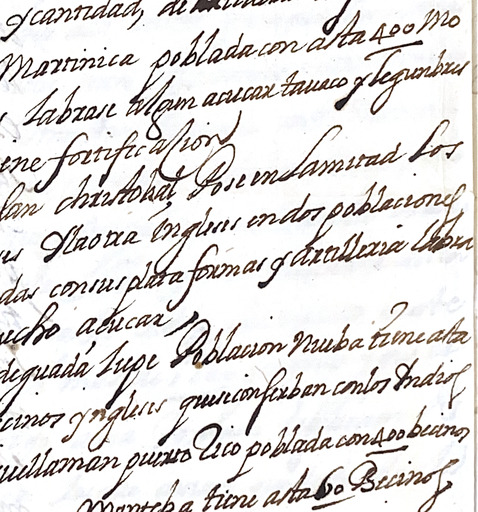 y cantidad, de
Martinica poblada con asta 400 Mo
Labrase algun acucar tavaco y legunbres
iene fortificasion
San christobal, Poseen La mitad Los
es y la otra ingleses en dos poblaciones
das con sus plata formas y artilleria labra
ucho acucar,
de guada lupe Poblacion nueba tiene asta
ecinos yngleses que se conserban con los Indios
que llaman puerto Rico poblada con 400 becinos
tiene asta 60 Becinos